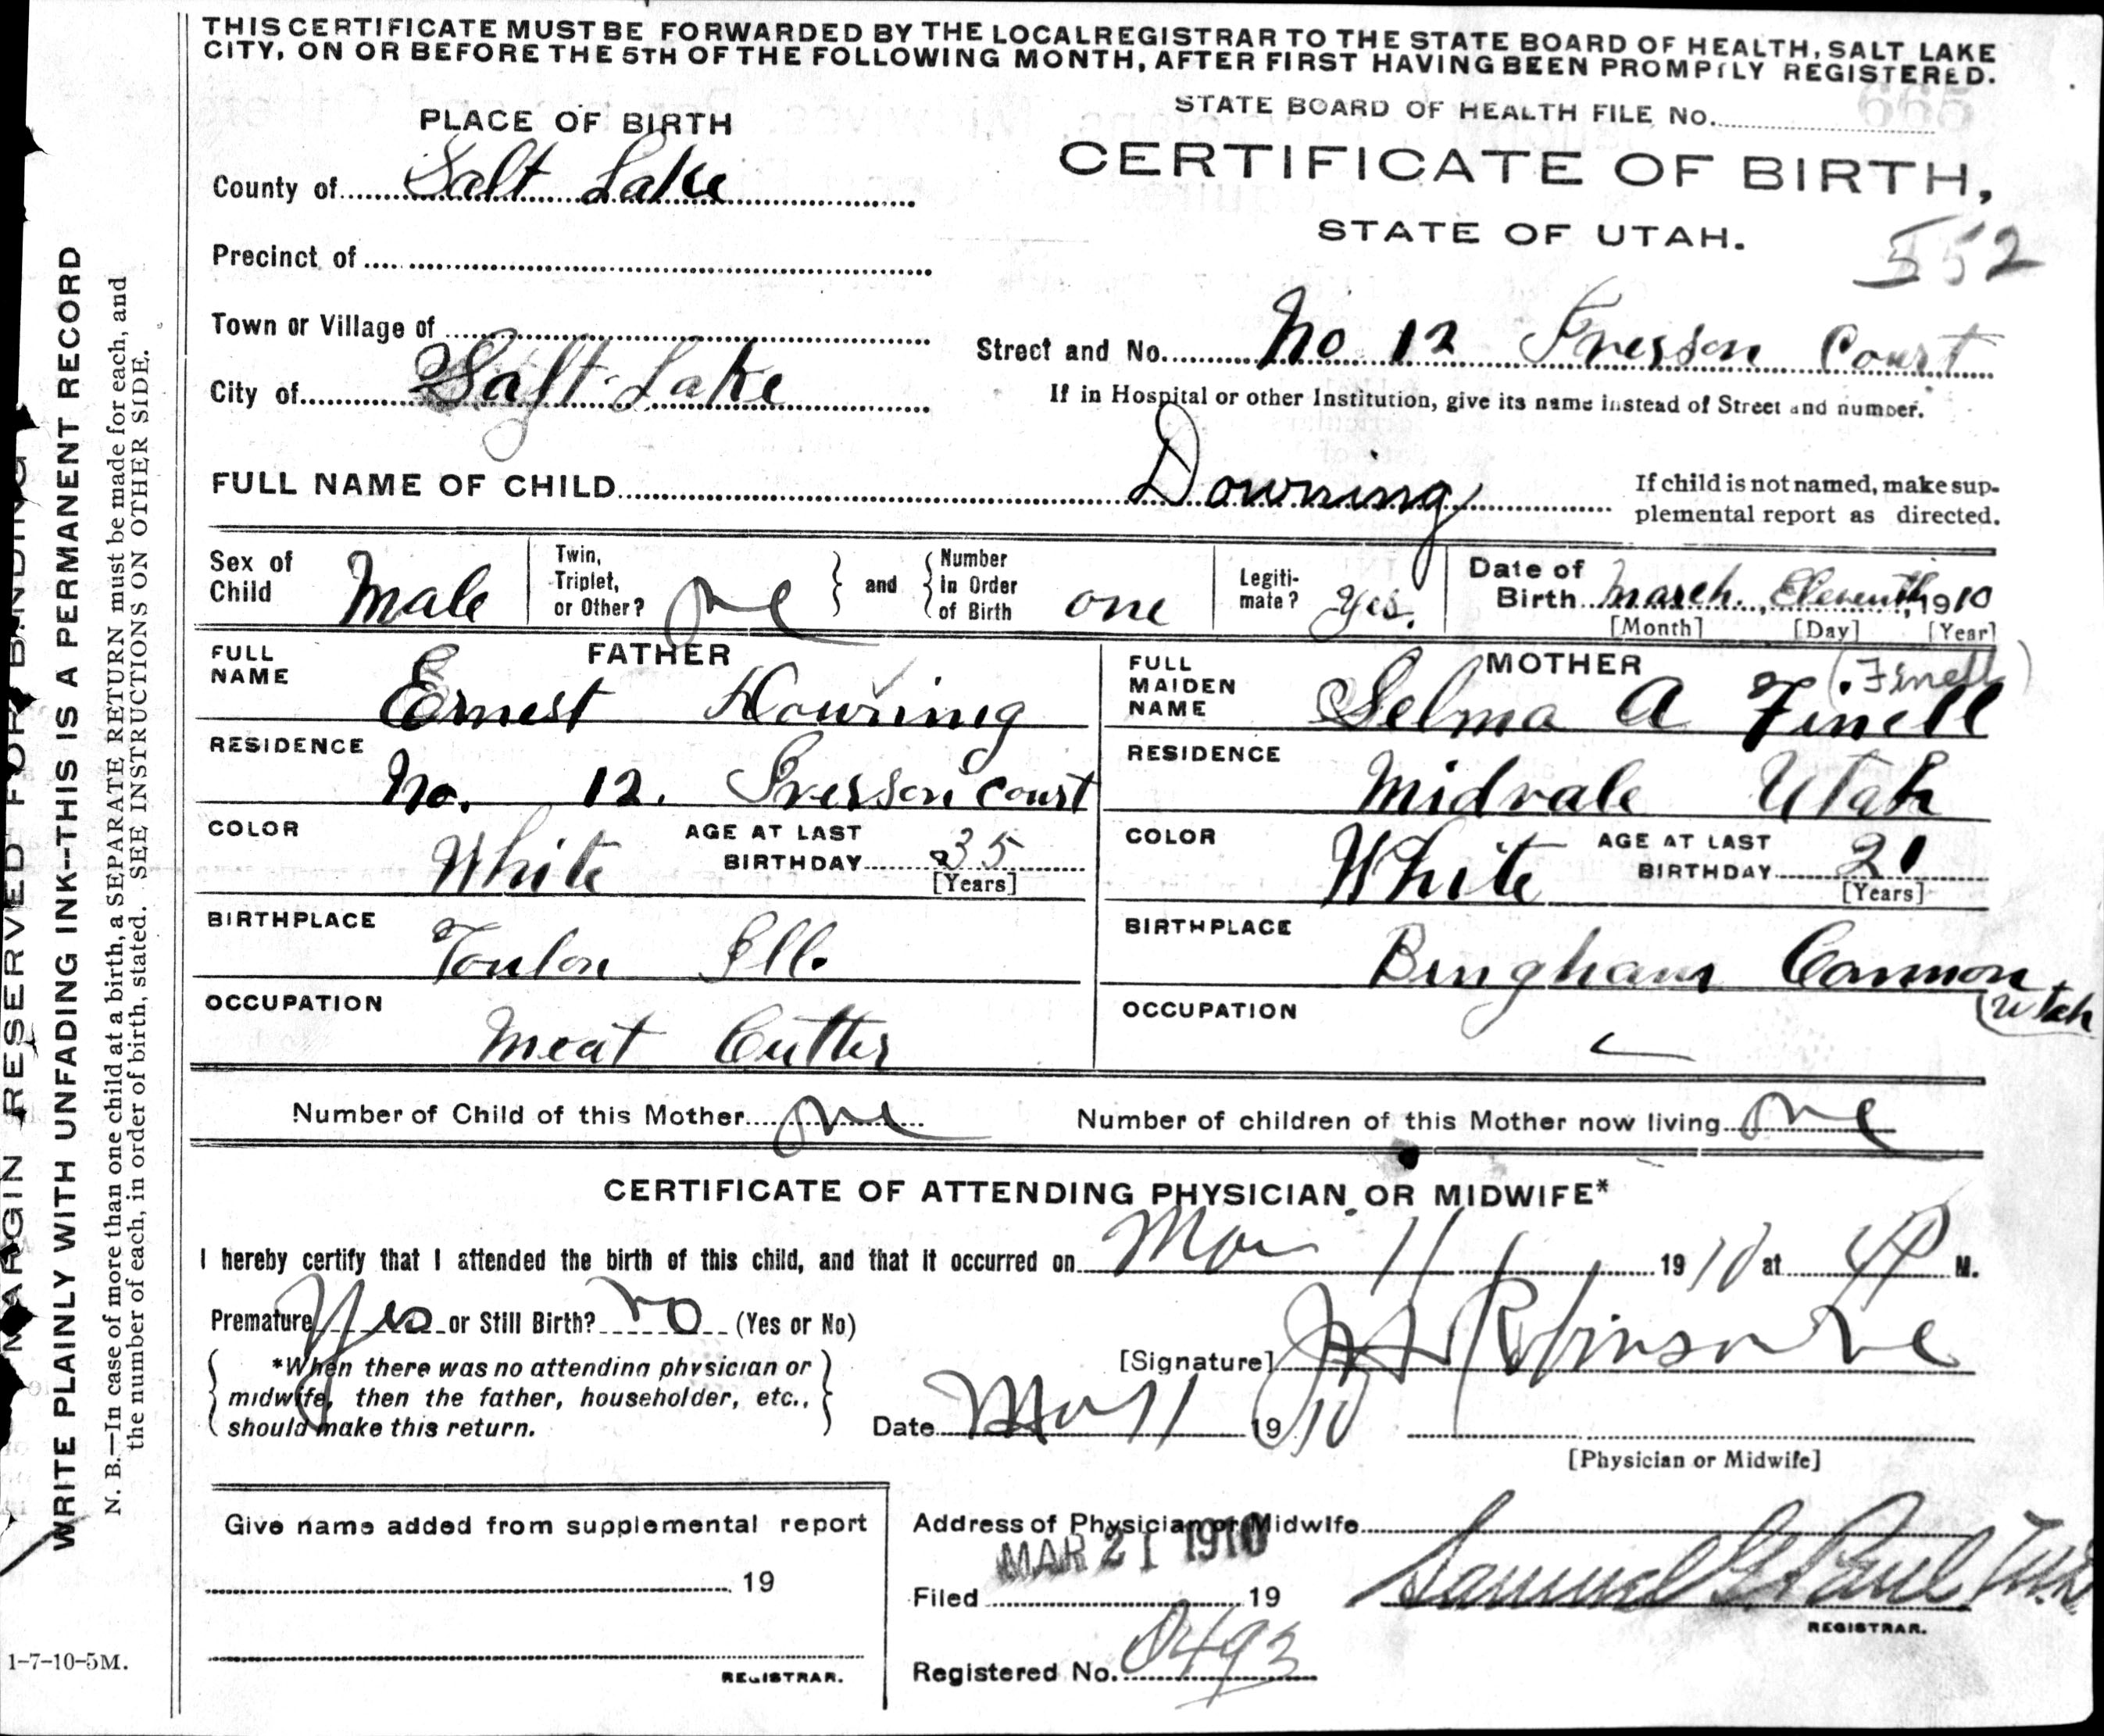 THIS CERTIFICATE MUST BE FORWARDED BY THE LOCAL REGISTRAR TO THE STATE BOARD OF HEALTH, SALT LAKE
CITY, ON OR BEFORE THE 5TH OF THE FOLLOWING MONTH, AFTER FIRST HAVING BEEN PROMPTLY REGISTERED.
STATE BOARD OF HEALTH FILE No.
PLACE OF BIRTH
CERTIFICATE OF BIRTH,
County of Salt Lake
STATE OF UTAH.
552
Precinct of
Town or Village of
Street and No. No 12 Presson Court
City of Salt Lake
If in Hospital or other Institution, give its name instead of Street and number.
FULL NAME OF CHILD Downing
If child is not named, make sup-
plemental report as directed.
Sex of Child Male
Twin, Triplet, or Other? one
and
Number in Order of Birth one
Legiti-mate? Yes.
Date of Birth March, Eleventh, 1910
[Month] [Day] [Year]
FATHER
FULL NAME Ernest Howring
MOTHER
(Finell)
FULL MAIDEN NAME Selma A Finell
RESIDENCE No. 12. Presson Court
RESIDENCE Midvale Utah
COLOR White
AGE AT LAST BIRTHDAY 35 [Years]
COLOR White
AGE AT LAST BIRTHDAY 21 [Years]
BIRTHPLACE Toulon Ill.
BIRTHPLACE Bingham Cannon Utah
OCCUPATION Meat Cutter
OCCUPATION
Number of Child of this Mother one
Number of children of this Mother now living one
CERTIFICATE OF ATTENDING PHYSICIAN OR MIDWIFE*
I hereby certify that I attended the birth of this child, and that it occurred on Mar 11 1910 at 4 P M.
Premature Yes or Still Birth? no (Yes or No)
*When there was no attending physician or
midwife, then the father, householder, etc.,
should make this return.
[Signature] Robinson
Date Mar 11 1910
[Physician or Midwife]
Give name added from supplemental report
19
REGISTRAR.
Address of Physician or Midwife
MAR 21 1910
Filed 19
Samuel G. Paul
REGISTRAR.
Registered No. 0493
MARGIN RESERVED FOR BINDING
WRITE PLAINLY WITH UNFADING INK--THIS IS A PERMANENT RECORD
N. B.—In case of more than one child at a birth, a SEPARATE RETURN must be made for each, and
the number of each, in order of birth, stated. SEE INSTRUCTIONS ON OTHER SIDE.
1-7-10-5M.